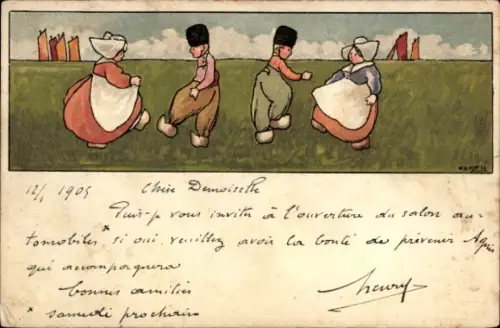 12/1 1905 Chère Demoiselle
Puis-je vous inviter à l'ouverture du salon au-
tomobiles * si oui veuillez avoir la bonté de prévenir Agnès
qui accompagnera
bonnes amitiés
* samedi prochain
Henry